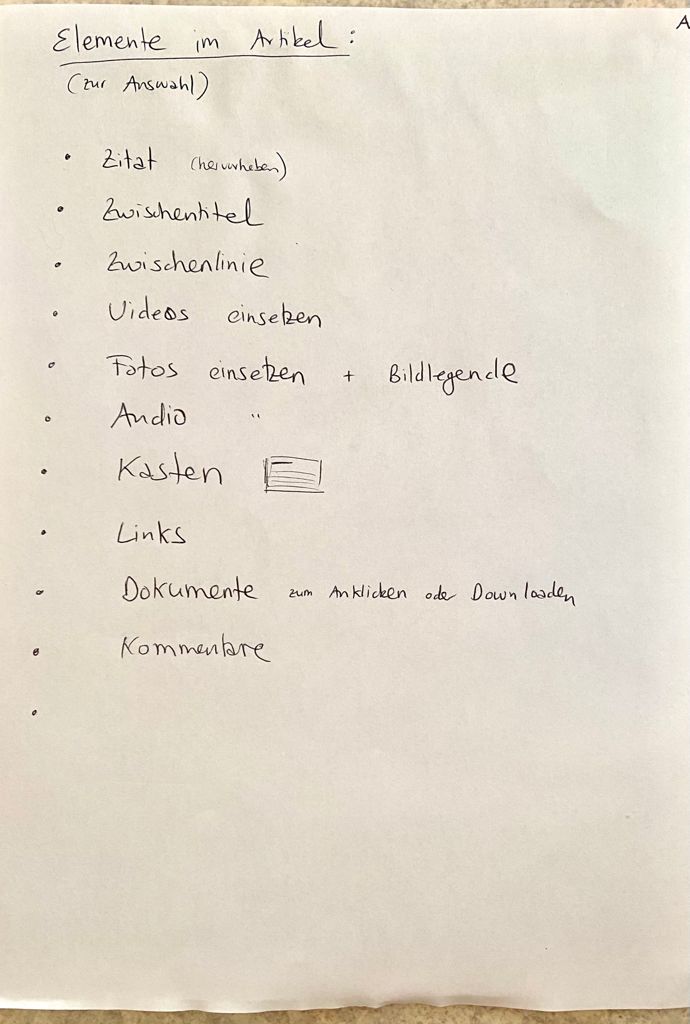 A
Elemente im Artikel:
(zur Auswahl)
• Zitat (hervorheben)
• Zwischentitel
• Zwischenlinie
• Videos einsetzen
• Fotos einsetzen + Bildlegende
• Audio "
• Kasten
• Links
• Dokumente zum Anklicken oder Downloaden
• Kommentare
•